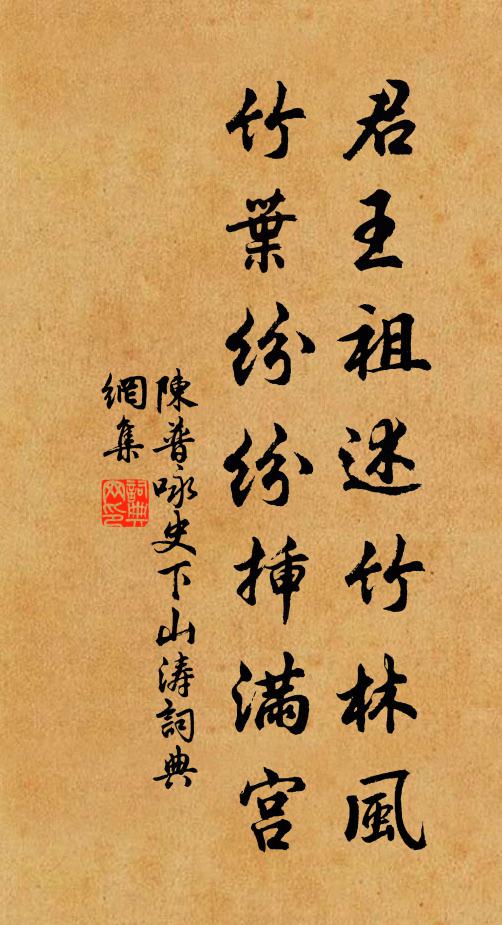 君王祖述竹林風
竹葉紛紛揷滿宮
陳普咏史下山濤詞典
網集
詞典
网印